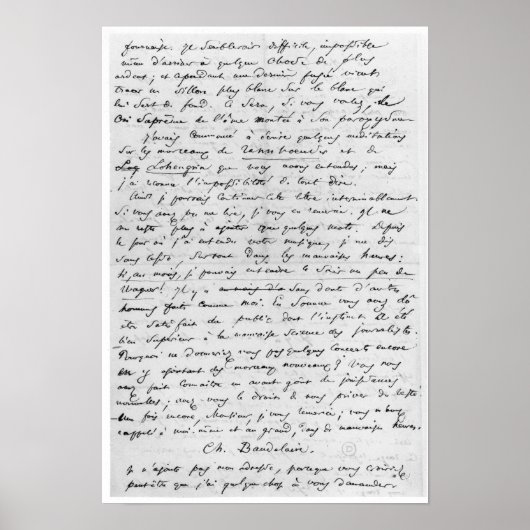 fournaise. Il semblerait difficile, impossible
même d'arriver à quelque chose de plus
ardent; et cependant une dernière fusée vient
tracer un sillon plus blanc sur le blanc qui
lui sert de fond. Ce sera, si vous voulez, le
cri suprême de l'âme montée à son paroxysme.
J'avais commencé à écrire quelques méditations
sur les morceaux de Tannhoeuser et de
Lohengrin que nous avons entendus; mais
j'ai reconnu l'impossibilité de tout dire.
Ainsi je pourrais continuer cette lettre interminablement.
Si vous avez pu me lire, je vous en remercie. Il ne
me reste plus à ajouter que quelques mots. Depuis
le jour où j'ai entendu votre musique, je me dis
sans cesse, surtout dans les mauvaises heures:
Si, au moins, je pouvais entendre ce soir un peu de
Wagner! Il y a sans doute d'autres
hommes faits comme moi. En somme vous avez dû
être satisfait du public dont l'instinct a été
bien supérieur à la mauvaise science des journalistes.
Pourquoi ne donneriez vous pas quelques concerts encore
en y ajoutant des morceaux nouveaux? Vous nous
avez fait connaître un avant goût de jouissances
nouvelles; avez-vous le droit de nous priver du reste?
Une fois encore, Monsieur, je vous remercie; vous m'avez
rappelé à moi-même et au grand, dans de mauvaises heures.
Ch. Baudelaire.
Je n'ajoute pas mon adresse, parce que vous croiriez
peut-être que j'ai quelque chose à vous demander.